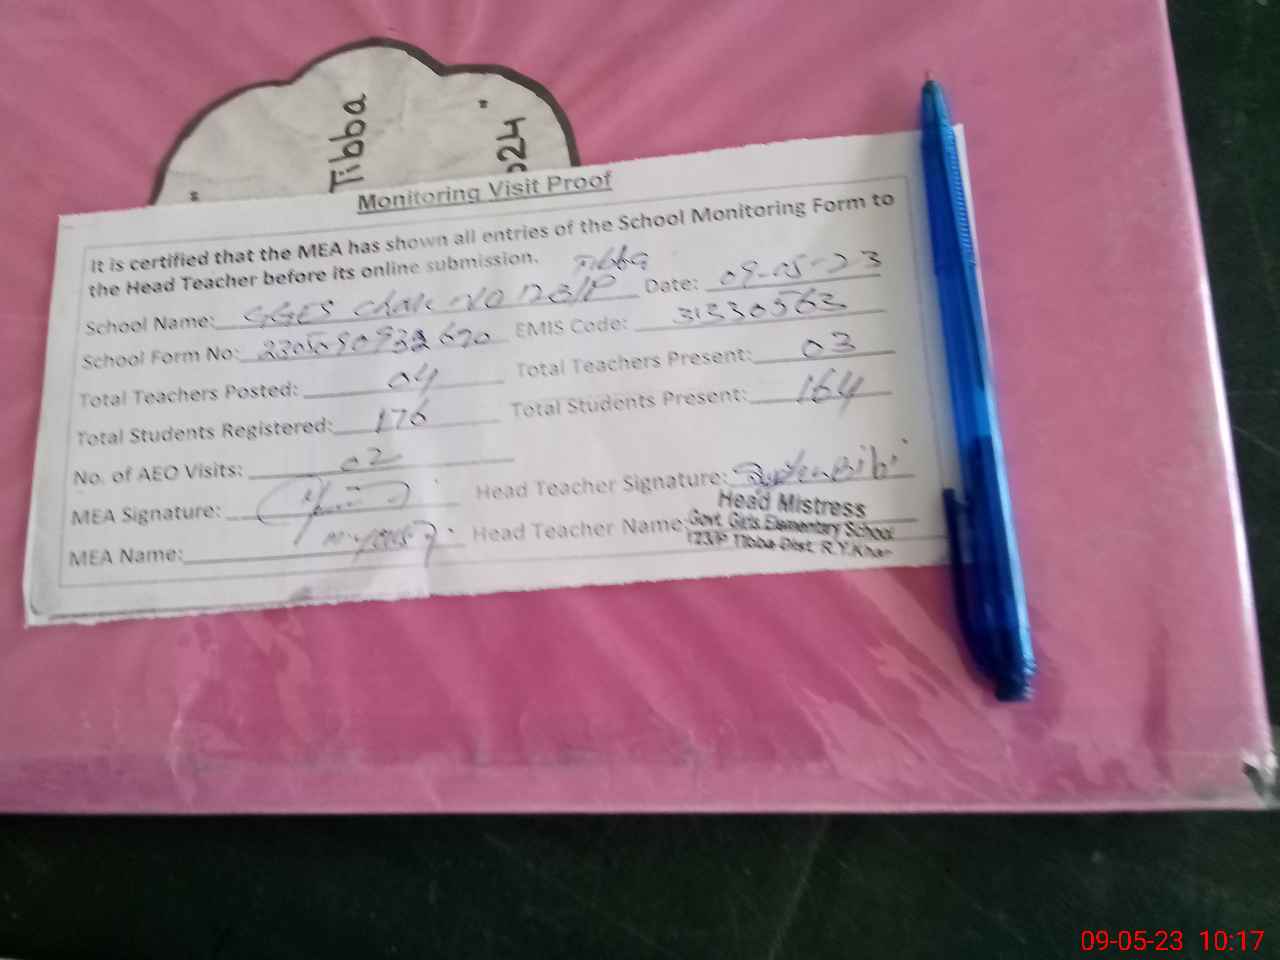 Tibba
024
Monitoring Visit Proof
It is certified that the MEA has shown all entries of the School Monitoring Form to
the Head Teacher before its online submission.
Tibba
School Name: GGES Chak No 123/P Date: 09-05-23
School Form No: EMIS Code: 31330563
Total Teachers Posted: 04 Total Teachers Present: 03
Total Students Registered: 176 Total Students Present: 164
No. of AEO Visits: 02
MEA Signature: Head Teacher Signature: Bibi
Head Mistress
MEA Name: Head Teacher Name: Govt. Girls Elementary School
123/P Tibba Dist. R.Y.Khan
09-05-23 10:17